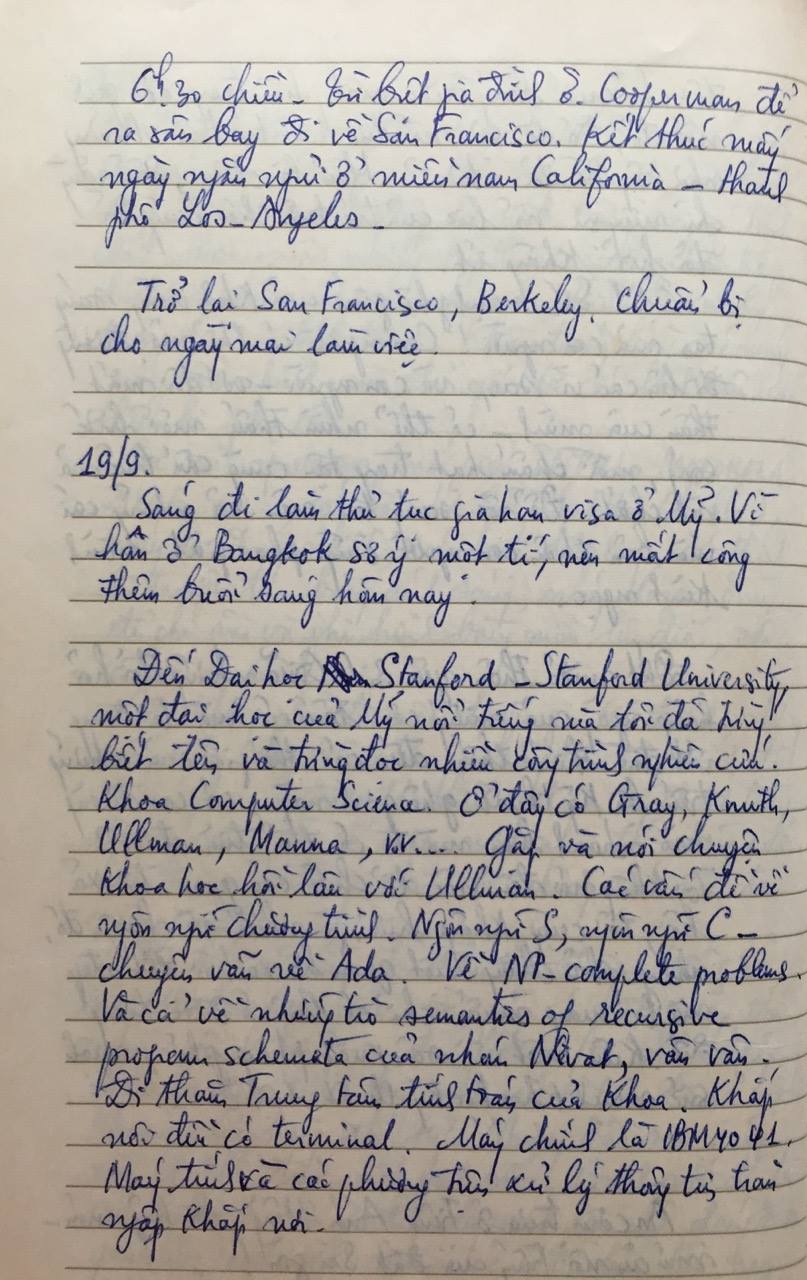 6h30 chiều - Từ biệt gia đình ô. Cooperman để
ra sân bay đi về San Francisco. Kết thúc mấy
ngày ngắn ngủi ở miền nam California - thành
phố Los-Angeles -
Trở lại San Francisco, Berkeley. Chuẩn bị
cho ngày mai làm việc.
19/9.
Sáng đi làm thủ tục gia hạn visa ở Mỹ. Vì
hôm ở Bangkok sơ ý một tí, nên mất công
thêm buổi sáng hôm nay.
Đến Đại học Stanford - Stanford University,
một đại học của Mỹ nổi tiếng mà tôi đã từng
biết tên và từng đọc nhiều công trình nghiên cứu.
Khoa Computer Science. Ở đây có Gray, Knuth,
Ullman, Manna, vv.... Gặp và nói chuyện
khoa học hồi lâu với Ullman. Các vấn đề về
ngôn ngữ chương trình. Ngôn ngữ S, ngôn ngữ C -
chuyện vãn về Ada. Về NP-complete problems.
Và cả về những trò semantics of recursive
program schemata của nhóm Nivat, vân vân.
Đi thăm Trung tâm tính toán của Khoa. Khắp
nơi đều có terminal. Máy chính là IBM 4041.
Máy tính và các phương tiện xử lý thông tin tràn
ngập khắp nơi.